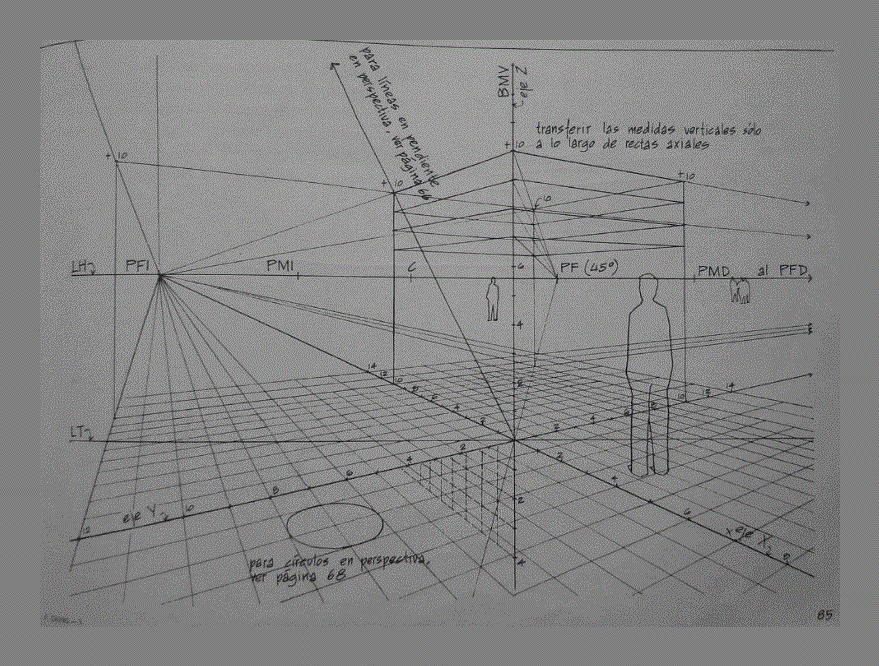 para líneas en pendiente
en perspectiva, ver página 66
BMV
eje Z
transferir las medidas verticales sólo
a lo largo de rectas axiales
+10
+10
+10
+10
10
LH
PFI
PMI
C
6
PF (45º)
PMD
al PFD
4
14
12
10
8
6
4
2
2
4
6
8
10
12
14
LT
2
4
6
8
6
2
4
6
8
2
4
eje Y
eje X
para círculos en perspectiva,
ver página 68
85